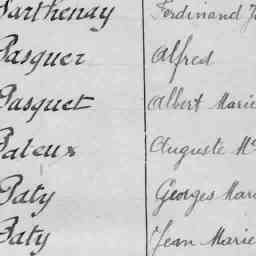 Parthenay Ferdinand J
Pasquer Alfred
Pasquet Albert Marie
Pateux Auguste M
Paty Georges Mari
Paty Jean Marie